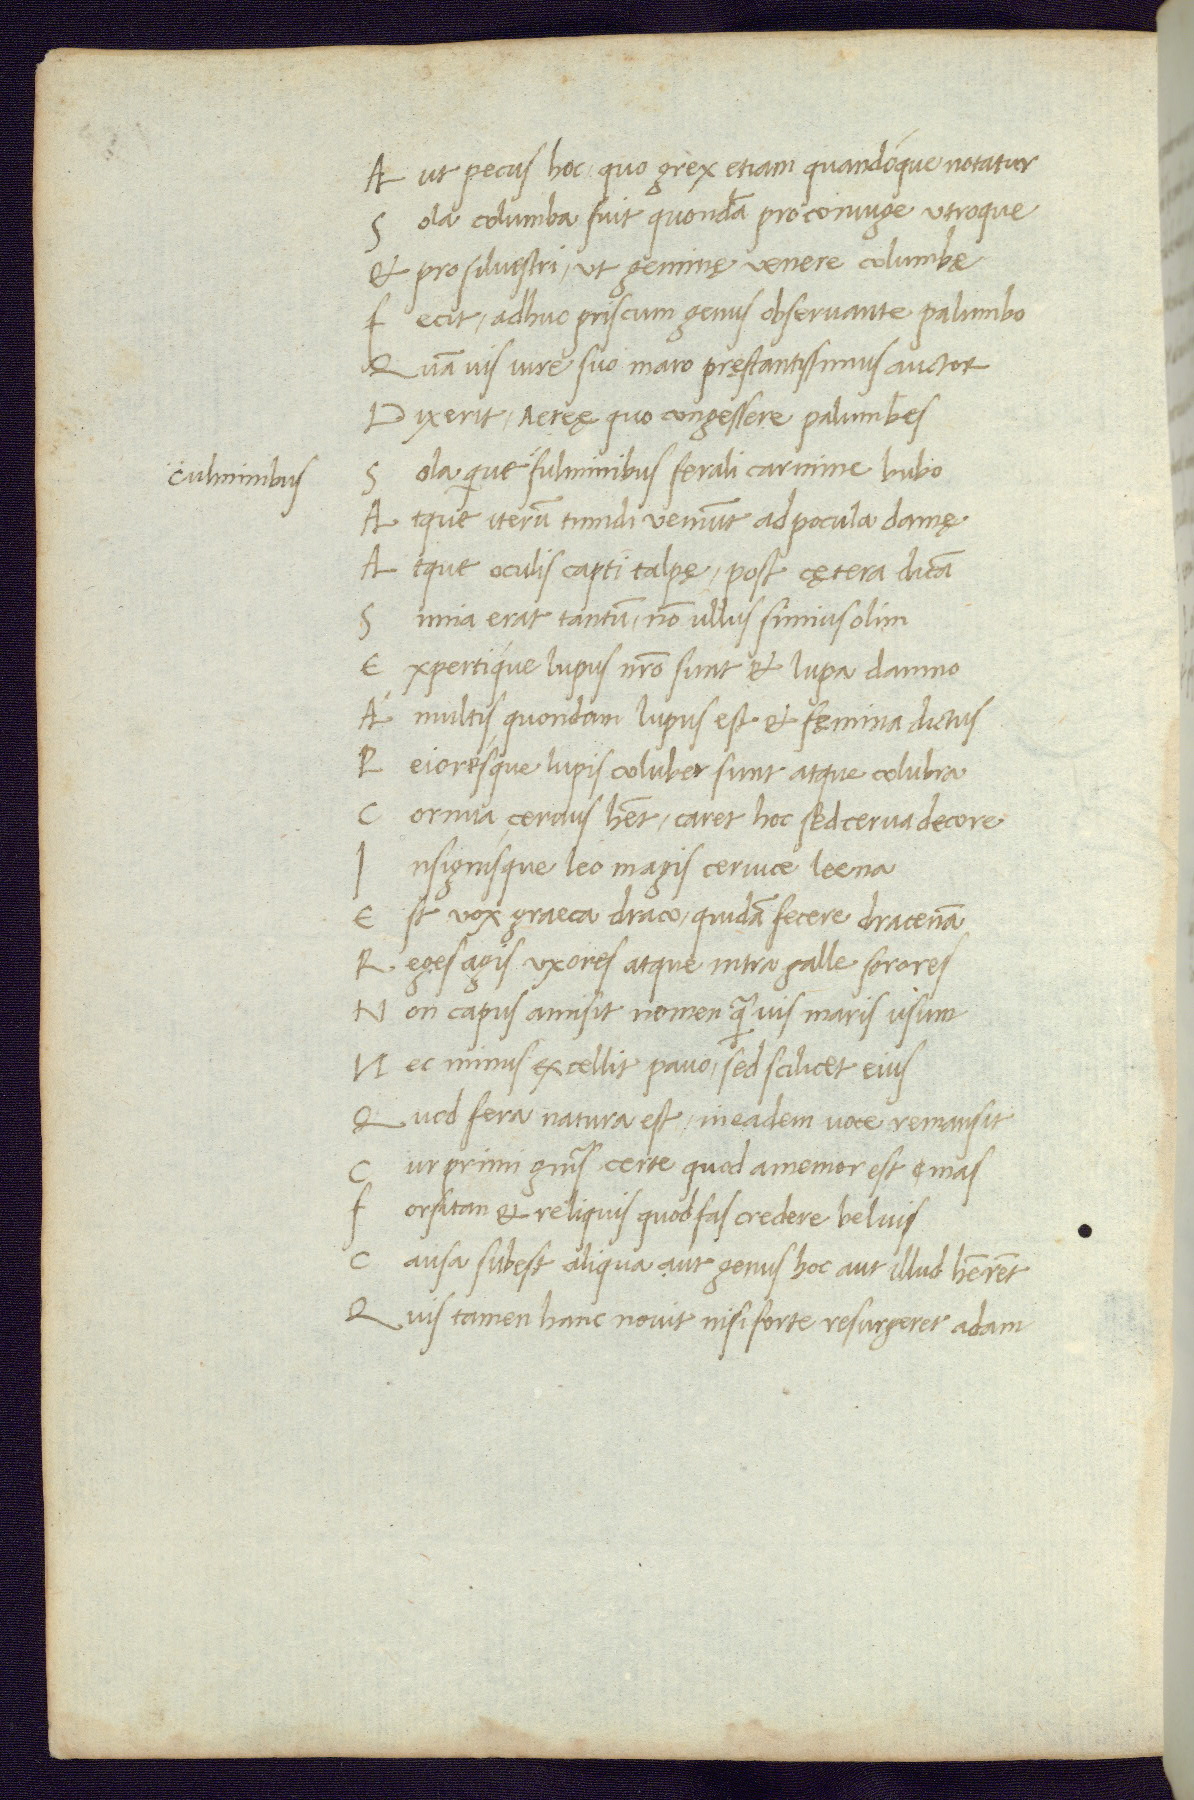 Aut pecus hoc, quo grex etiam quandóque notatur
Sola columba fuit quondā pro coniuge utroque
& pro siluestri, ut geminę uenere columbę
fecit, adhuc priscum genus obseruante palumbo
Quā uis iure suo maro pręstantissimus auctor
Dixerit, Aereę quo congessere palumbes
culminibus Sola que fulminibus ferali carmine bubo
Atque iterū timidi ueniunt ad pocula damę
Atque oculis capti talpę, post cętera dicā
Simia erat tantū, nō ullus simius olim
Expertique lupus nr̄o sunt & lupa damno
A multis quondam lupus est & fęmina dictus
Peioresque lupis coluber sunt atque colubra
Cornua ceruus hēt, caret hoc sed cerua decore
Insignisque leo magis ceruice leena
Est uox graeca draco, quidā fecere dracenā
Reges agis uxores atque intra galle sorores
Non capus amisit nomen quāuis maris usum
Nec minus excellit pauo, sed scilicet eius
Quod fera natura est, in eadem uoce remansit
Cur primi gn̄is certe quod amemor est & mas
forsitan & reliquis quod fas credere beluis
Causa subest aliqua aut genus hoc aut illud hērēt
Quis tamen hanc nouit nisi forte resurgeret adam